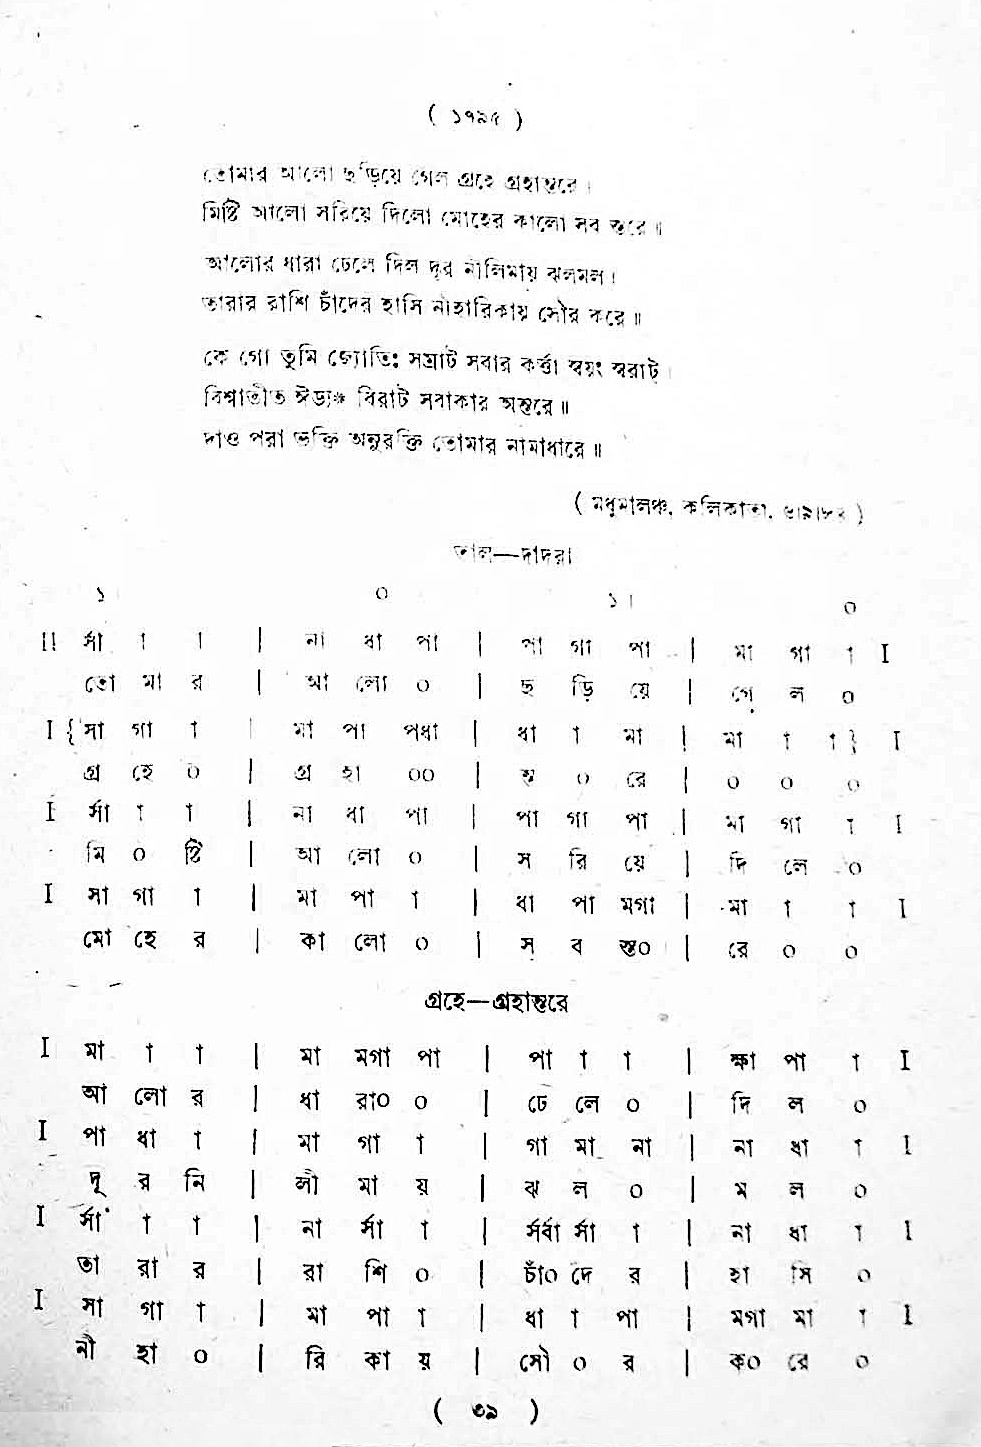 ( ১৭৯৫ )
তোমার আলো ছড়িয়ে গেল গ্রহে গ্রহান্তরে।
মিষ্টি আলো সরিয়ে দিলো মোহের কালো সব স্তরে॥
আলোর ধারা ঢেলে দিল দূর নীলিমায় ঝলমল।
তারার রাশি চাঁদের হাসি নীহারিকায় সৌর করে॥
কে গো তুমি জ্যোতিঃ সম্রাট সবার কর্ত্তা স্বয়ং স্বরাট্।
বিশ্বাতীত ঈড্যঞ্চ বিরাট সবাকার অন্তরে॥
দাও পরা ভক্তি অনুরক্তি তোমার নামাধারে॥
( মধুমালঞ্চ, কলিকাতা, ৬।৯।৮৪ )
তাল—দাদরা
১ ০ ১। ০
II র্সা া া | না ধা পা | পা গা পা | মা গা া I
তো মা র | আ লো ০ | ছ ড়ি য়ে | গে ল ০
I { সা গা া | মা পা পধা | ধা া মা | মা া া } I
গ্র হে ০ | গ্র হা ০০ | ন্ত ০ রে | ০ ০ ০
I র্সা া া | না ধা পা | পা গা পা | মা গা া I
মি ০ ষ্টি | আ লো ০ | স রি য়ে | দি লে ০
I সা গা া | মা পা া | ধা পা মগা | মা া া I
মো হে র | কা লো ০ | স ব স্ত০ | রে ০ ০
গ্রহে—গ্রহান্তরে
I মা া া | মা মগা পা | পা া া | ক্ষা পা া I
আ লো র | ধা রা০ ০ | ঢে লে ০ | দি ল ০
I পা ধা া | মা গা া | গা মা না | না ধা া I
দূ র নি | লী মা য় | ঝ ল ০ | ম ল ০
I র্সা া া | না র্সা া | র্সর্বা র্সা া | না ধা া I
তা রা র | রা শি ০ | চাঁ০ দে র | হা সি ০
I সা গা া | মা পা া | ধা া পা | মগা মা া I
নী হা ০ | রি কা য় | সৌ ০ র | ক০ রে ০
( ৩৯ )